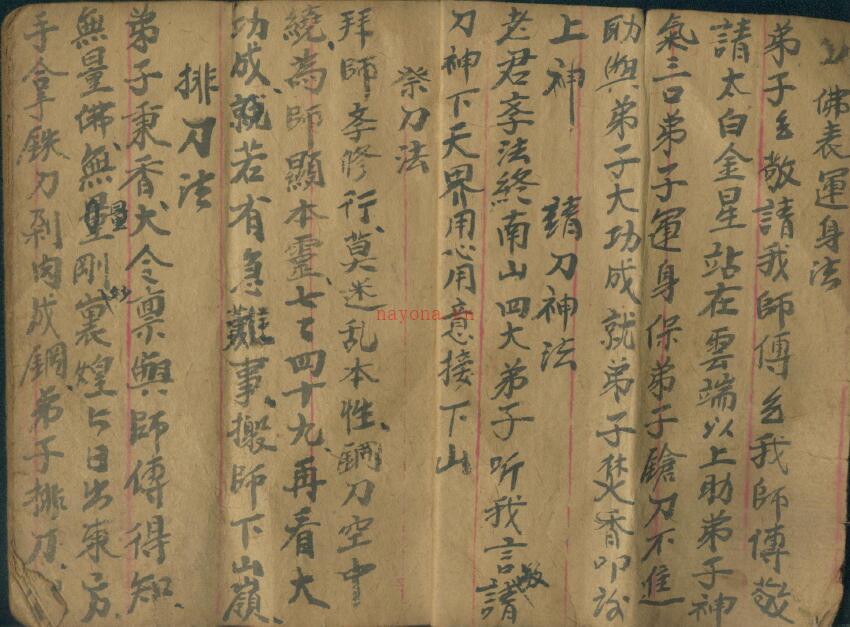 佛表運身法
弟子乞敬請我師傅乞我師傅敬
請太白金星站在雲端以上助弟子神
氣三口弟子運身保弟子鎗刀不進
助與弟子大功成就弟子焚香叩謝
上神 請刀神法
老君李法終南山四大弟子听我言請敬
刀神下天界用心用意接下山
祭刀法
拜師李修行莫迷乱本性鋼刀空中
繞為師顯本靈七七四十九再看大
功成就若有急難事搬師下山嶺
排刀法
弟子秉香火令稟與師傅得知
無量佛無量剛裏煌占日出東方
手拿鉄刀剁肉成鋼弟子排刀
nayona.vn